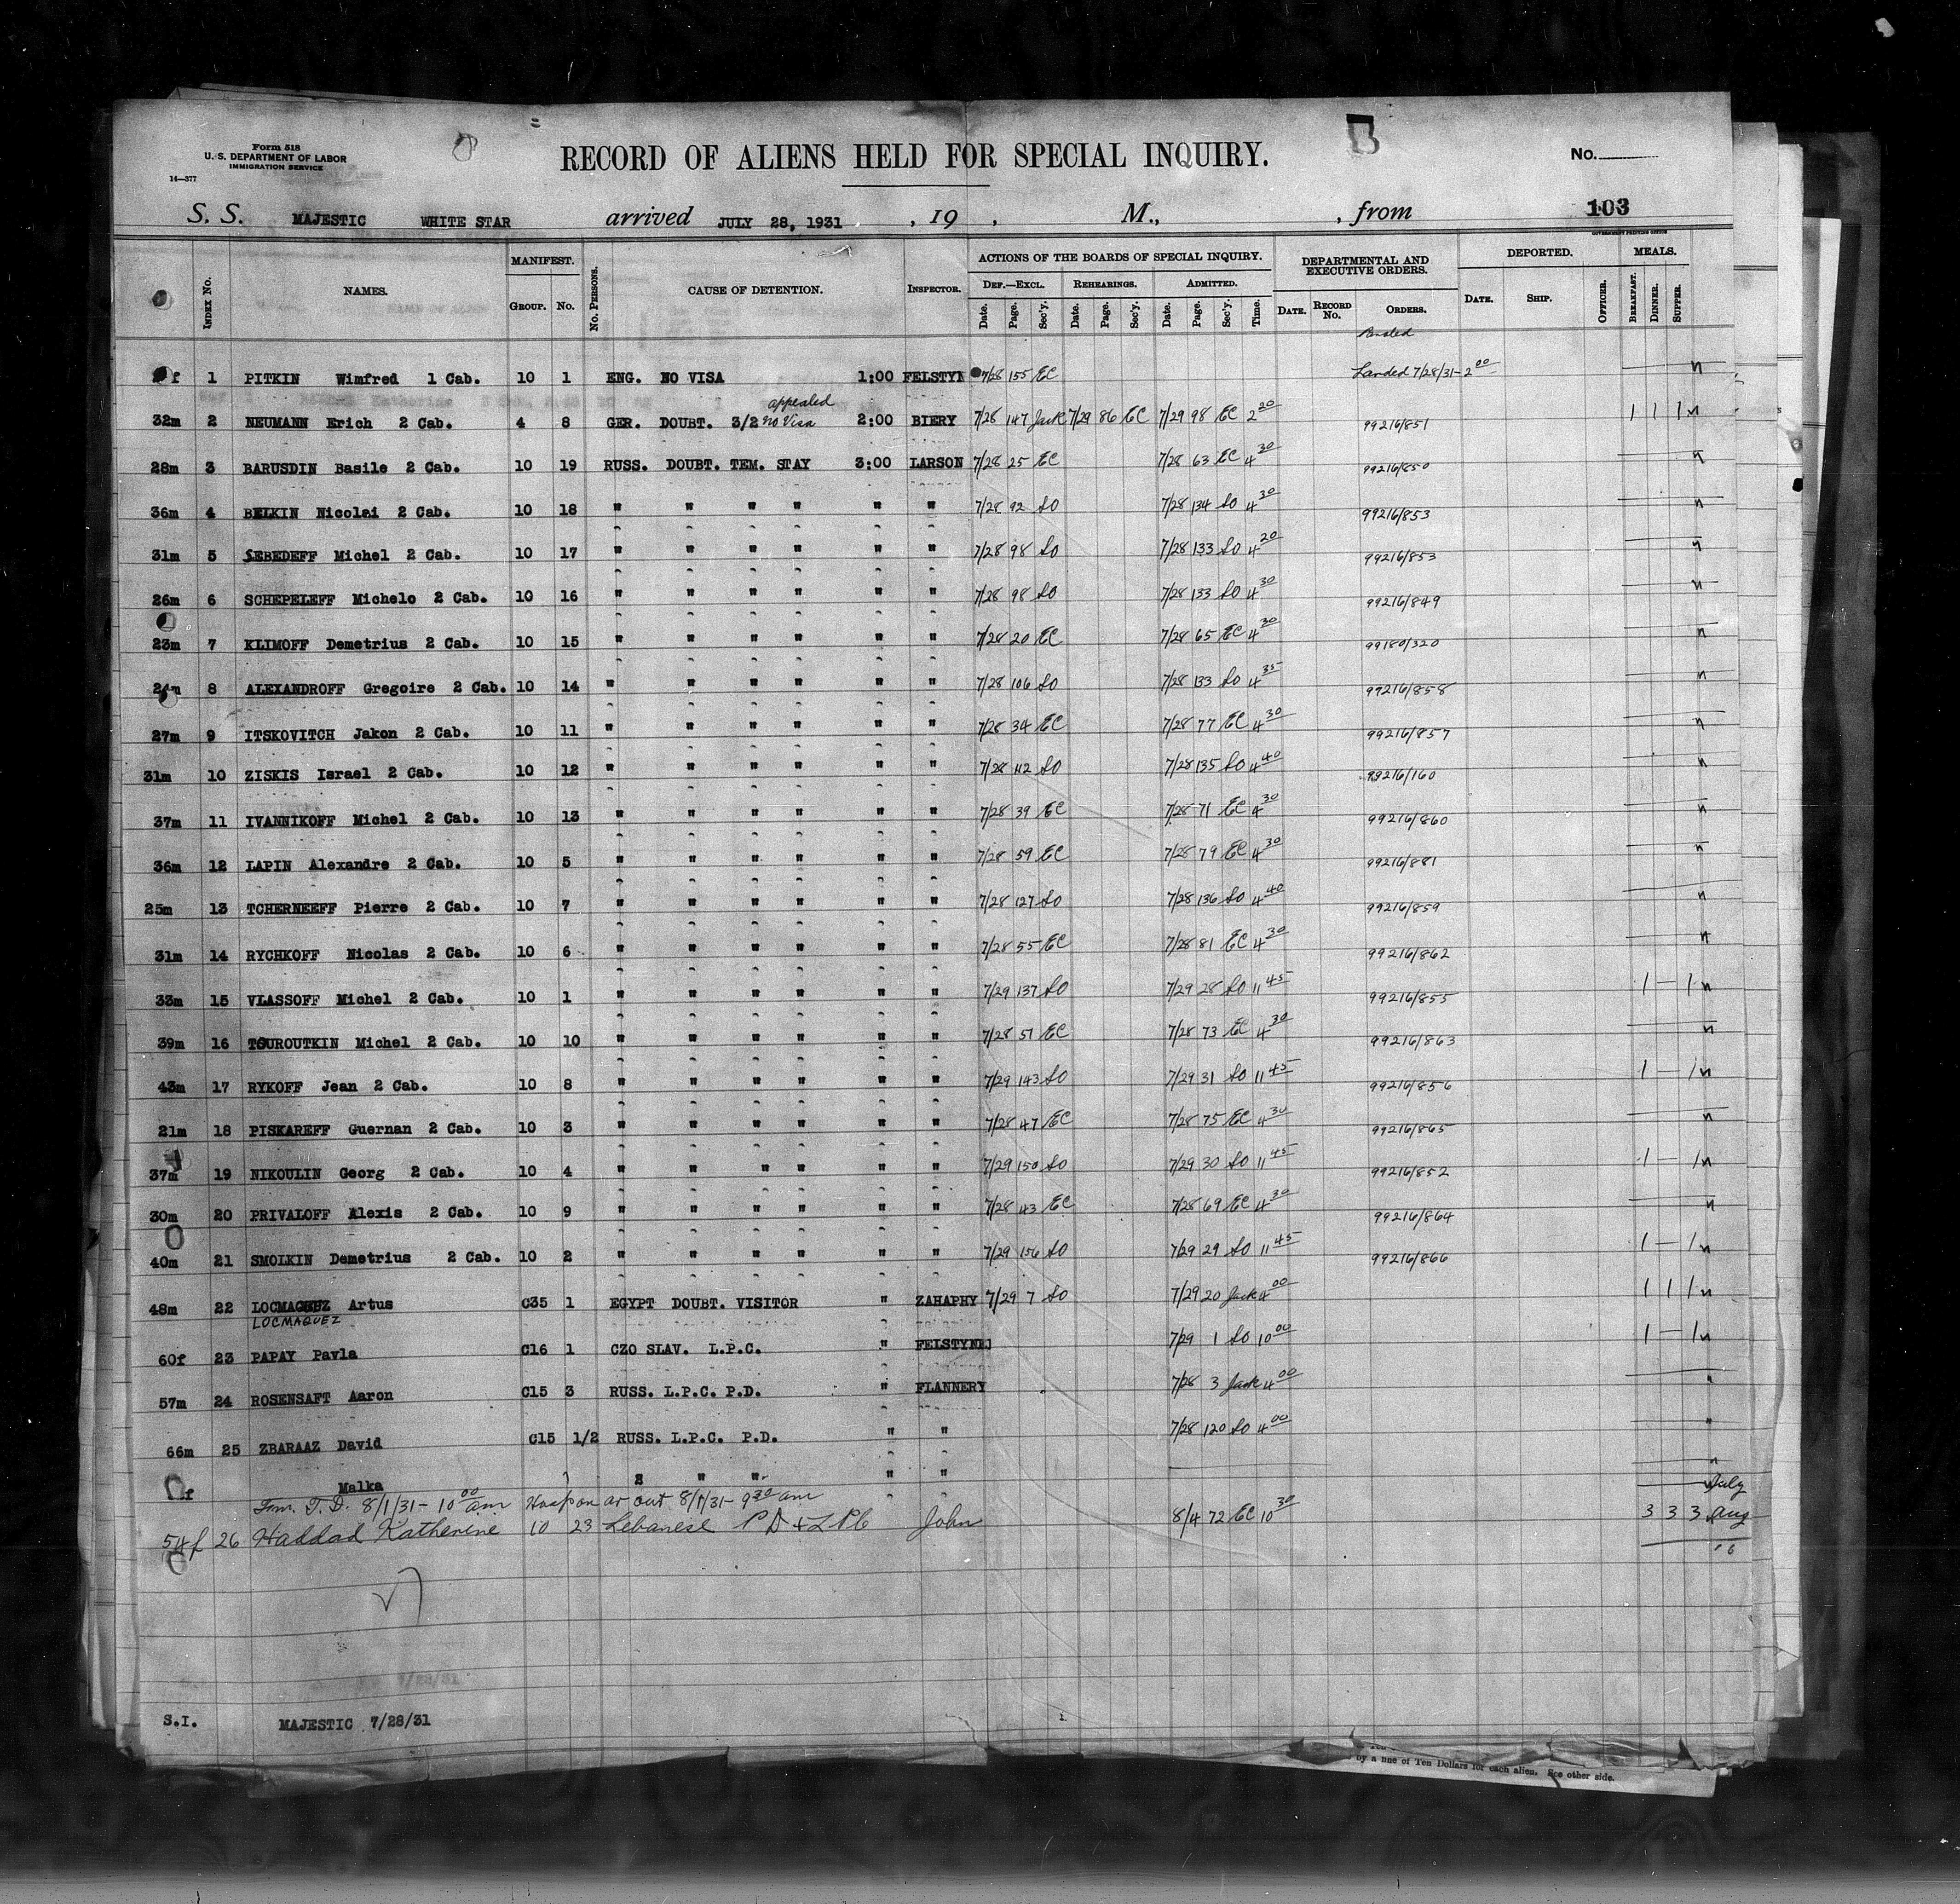 Form 518
U. S. DEPARTMENT OF LABOR
IMMIGRATION SERVICE
14—377
RECORD OF ALIENS HELD FOR SPECIAL INQUIRY.
No.
S. S. MAJESTIC WHITE STAR arrived JULY 28, 1931, 19 , M., , from 103
GOVERNMENT PRINTING OFFICE
INDEX No. NAMES. MANIFEST. GROUP. No. No. PERSONS. CAUSE OF DETENTION. INSPECTOR. ACTIONS OF THE BOARDS OF SPECIAL INQUIRY. DEF.—EXCL. Date. Page. Sec'y. REHEARINGS. Date. Page. Sec'y. ADMITTED. Date. Page. Sec'y. Time. DEPARTMENTAL AND EXECUTIVE ORDERS. DATE. RECORD No. ORDERS. DEPORTED. DATE. SHIP. OFFICER. MEALS. BREAKFAST. DINNER. SUPPER.
f 1 PITKIN Wimfred 1 Cab. 10 1 ENG. NO VISA 1:00 FELSTYN 7/28 155 EC Landed 7/28/31 - 2 00 — n
32m 2 NEUMANN Erich 2 Cab. 4 8 GER. DOUBT. 3/2 no Visa appealed 2:00 BIERY 7/28 147 Jack 7/29 86 EC 7/29 98 EC 2 20 99216/851 1 1 1 n
28m 3 BARUSDIN Basile 2 Cab. 10 19 RUSS. DOUBT. TEM. STAY 3:00 LARSON 7/28 25 EC 7/28 63 EC 4 30 99216/850 — n
36m 4 BELKIN Nicolai 2 Cab. 10 18 " " " " " " 7/28 92 SO 7/28 134 SO 4 30 99216/853 — n
31m 5 SEBEDEFF Michel 2 Cab. 10 17 " " " " " " 7/28 98 SO 7/28 133 SO 4 20 99216/853 — n
26m 6 SCHEPELEFF Michelo 2 Cab. 10 16 " " " " " " 7/28 98 SO 7/28 133 SO 4 30 99216/849 — n
23m 7 KLIMOFF Demetrius 2 Cab. 10 15 " " " " " " 7/28 20 EC 7/28 65 EC 4 30 99180/320 — n
24m 8 ALEXANDROFF Gregoire 2 Cab. 10 14 " " " " " " 7/28 106 SO 7/28 133 SO 4 35 99216/858 — n
27m 9 ITSKOVITCH Jakon 2 Cab. 10 11 " " " " " " 7/28 34 EC 7/28 77 EC 4 30 99216/857 — n
31m 10 ZISKIS Israel 2 Cab. 10 12 " " " " " " 7/28 112 SO 7/28 135 SO 4 40 99216/160 — n
37m 11 IVANNIKOFF Michel 2 Cab. 10 13 " " " " " " 7/28 39 EC 7/28 71 EC 4 30 99216/860 — n
36m 12 LAPIN Alexandre 2 Cab. 10 5 " " " " " " 7/28 59 EC 7/28 79 EC 4 30 99216/881 — n
25m 13 TCHERNEEFF Pierre 2 Cab. 10 7 " " " " " " 7/28 127 SO 7/28 136 SO 4 40 99216/859 — n
31m 14 RYCHKOFF Nicolas 2 Cab. 10 6 " " " " " " 7/28 55 EC 7/28 81 EC 4 30 99216/862 — n
33m 15 VLASSOFF Michel 2 Cab. 10 1 " " " " " " 7/29 137 SO 7/29 28 SO 11 45 99216/855 1 — 1 n
39m 16 TSUROUTKIN Michel 2 Cab. 10 10 " " " " " " 7/28 51 EC 7/28 73 EC 4 30 99216/863 — n
43m 17 RYKOFF Jean 2 Cab. 10 8 " " " " " " 7/29 143 SO 7/29 31 SO 11 45 99216/856 1 — 1 n
21m 18 PISKAREFF Guernan 2 Cab. 10 3 " " " " " " 7/28 47 EC 7/28 75 EC 4 30 99216/865 — n
37m 19 NIKOULIN Georg 2 Cab. 10 4 " " " " " " 7/29 150 SO 7/29 30 SO 11 45 99216/852 1 — 1 n
30m 20 PRIVALOFF Alexis 2 Cab. 10 9 " " " " " " 7/28 43 EC 7/28 69 EC 4 30 99216/864 — n
40m 21 SMOLKIN Demetrius 2 Cab. 10 2 " " " " " " 7/29 156 SO 7/29 29 SO 11 45 99216/866 1 — 1 n
48m 22 Artus C35 1 EGYPT DOUBT. VISITOR " ZAHAPHY 7/29 7 SO 7/29 20 Jack 4 00 1 1 1 n
LOCMAQUEZ
60f 23 PAPAY Pavla C16 1 CZO SLAV. L.P.C. " FELSTYNE 7/29 1 SO 10 00 1 — 1 n
57m 24 ROSENSAFT Aaron C15 3 RUSS. L.P.C. P.D. " FLANNERY 7/28 3 Jack 4 00 — "
66m 25 ZBARAAZ David C15 1/2 RUSS. L.P.C. P.D. " " 7/28 120 SO 4 00 — "
f Malka " " " " July
T.D. 8/1/31 - 10 00 am out 8/1/31 - 9 30 am
54f 26 Haddad Katherine 10 23 Lebanese PD + LPC John 8/4 72 EC 10 30 3 3 3 Aug
S.I. MAJESTIC 7/28/31
by a fine of Ten Dollars for each alien. See other side.